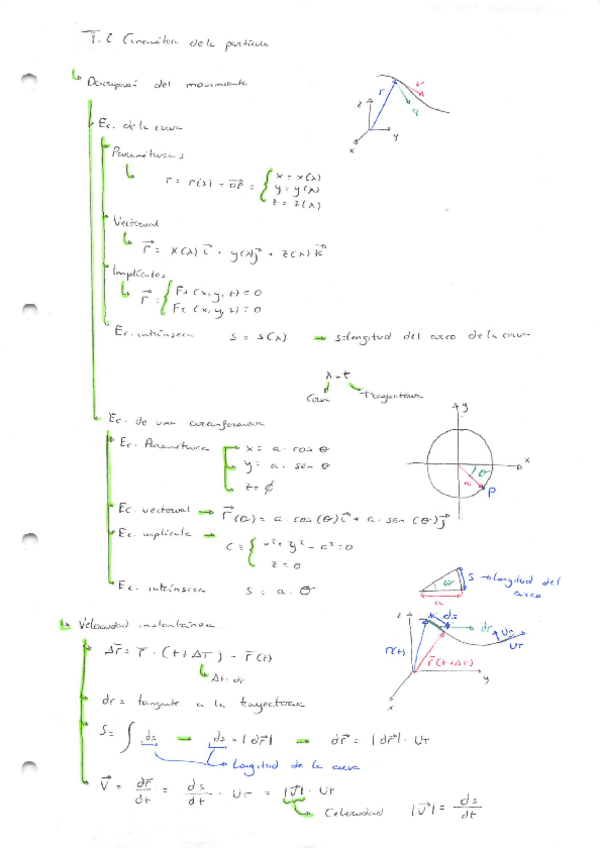 T.2 Cinemática de la partícula
Descripción del movimiento
Ec. de la curva
Paramétricas
r = r(λ) = OP = { x = x(λ)
y = y(λ)
z = z(λ)
Vectorial
r = x(λ) i + y(λ) j + z(λ) k
Implícitas
r = { F1 (x, y, z) = 0
F2 (x, y, z) = 0
Ec. intrínseca s = s(λ) → s: longitud del arco de la curva
λ = t
Curva Trayectoria
Ec. de una circunferencia
Ec. Paramétrica x = a · cos θ
y = a · sen θ
z = ϕ
Ec. vectorial → r(θ) = a · cos(θ) i + a · sen(θ) j
Ec. implícita → C = { x² + y² - a² = 0
z = 0
Ec. intrínseca s = a · θ
s → longitud del arco
Velocidad instantánea
Δr = r · (t + ΔT) - r(t)
Δt: dt
dr = tangente a la trayectoria
S = ∫ ds → ds = |dr| → dr = |dr| · UT
Longitud de la curva
V = dr/dt = ds/dt · UT = |V| · UT
Celeridad |V| = ds/dt
z r v a y x
y x θ a P
θ a
z ds dr r(t) r(t+Δt) UT y x